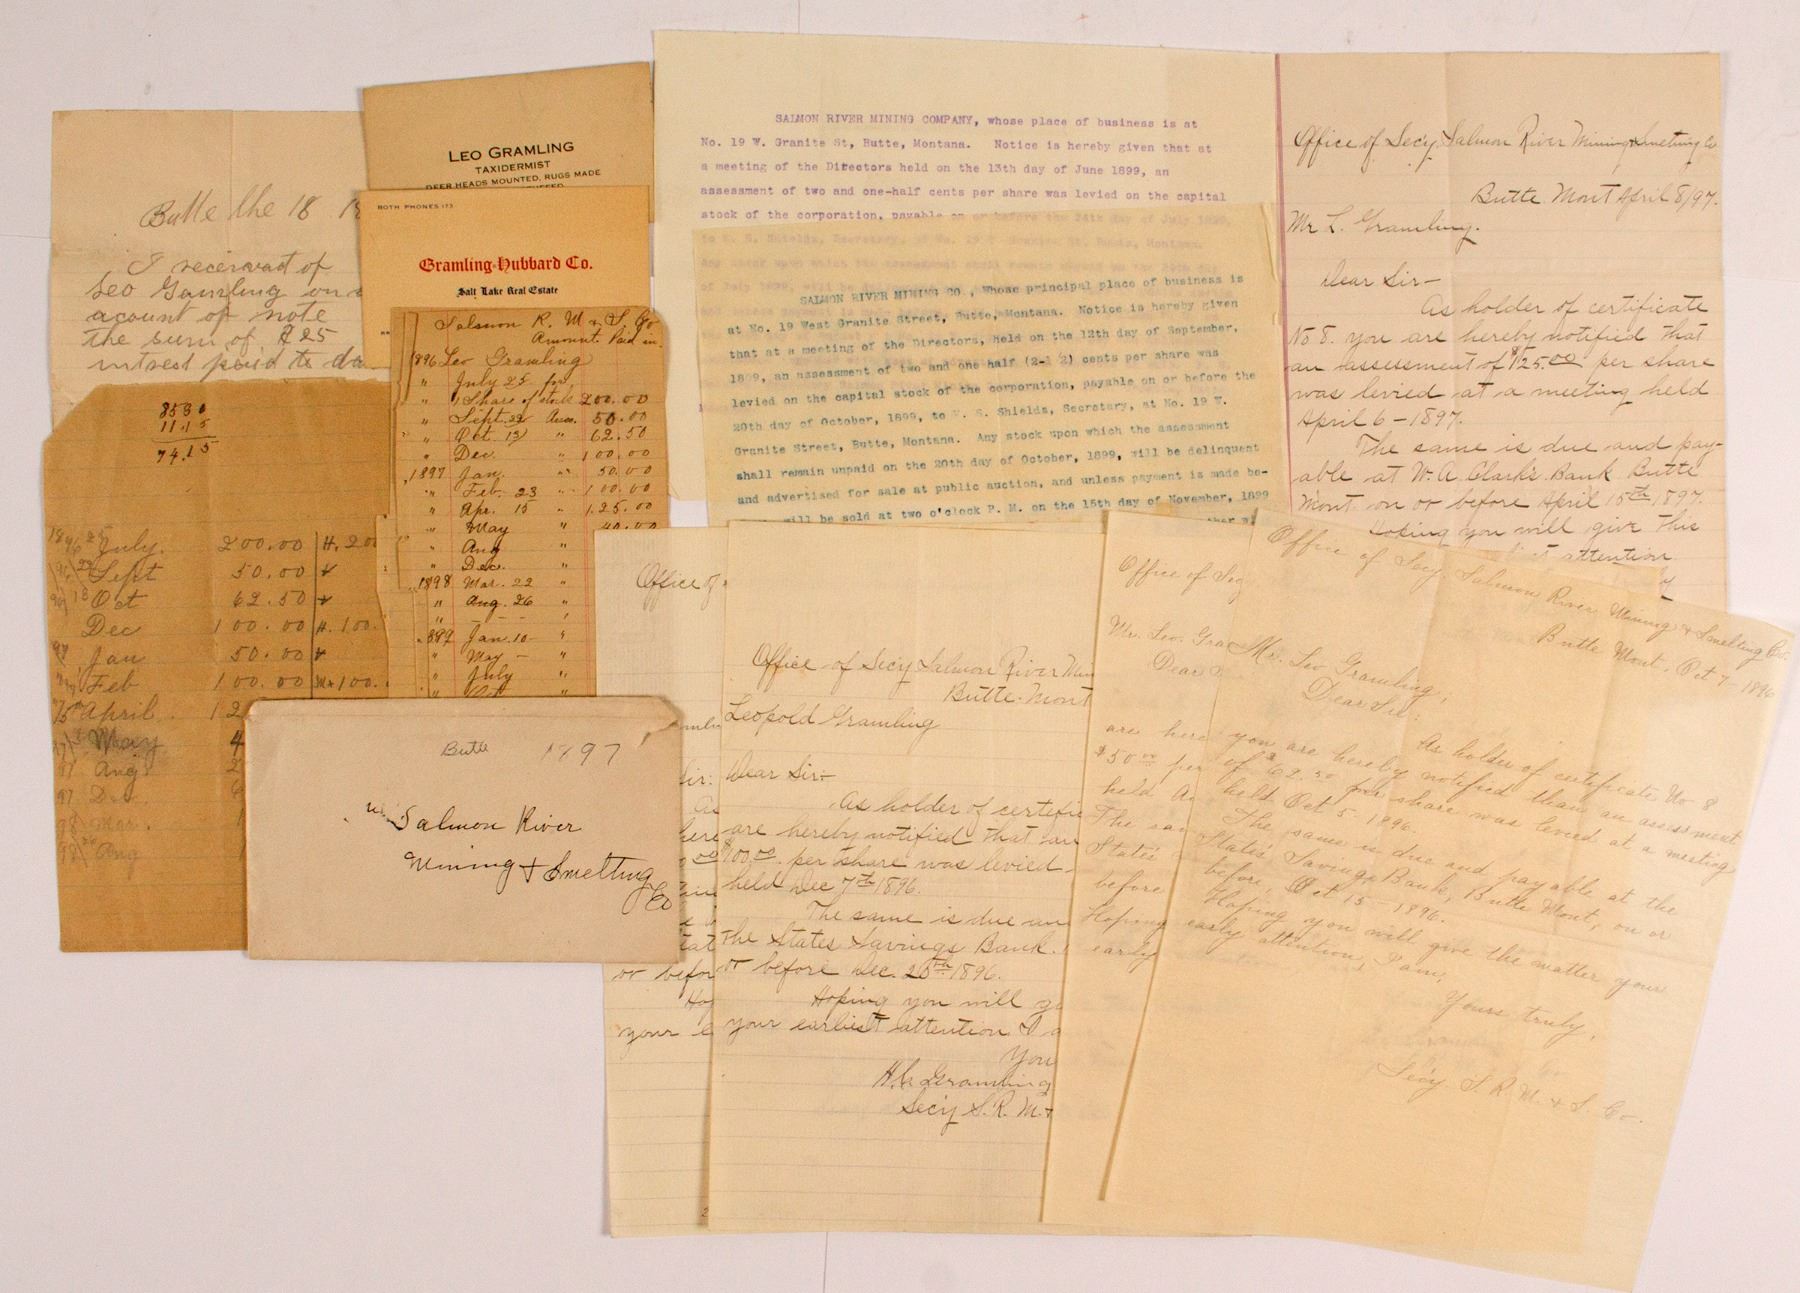 Butte the 18 18
I recieved of
Leo Gamling on
acount of note
the sum of $25
intrest paid to da
LEO GRAMLING
TAXIDERMIST
DEER HEADS MOUNTED, RUGS MADE
BOTH PHONES 173
Gramling-Hubbard Co.
Salt Lake Real Estate
Salmon R. M & S. Co
Amount Paid in
1896 Leo Gramling
" July 25 for
" 1 Share of stock 200.00
" Sept. 22 Asses. 50.00
" Oct. 13 " 62.50
" Dec. " 100.00
1897 Jan. " 50.00
" Feb. 23 " 100.00
" Apr. 15 " 125.00
" May " 40.00
" Aug "
" Dec. "
1898 Mar. 22 "
" Aug. 26 "
1899 Jan. 10 - "
" May - "
" July "
8530
11.15
74.15
July. 200.00 H. 20
Sept 50.00
Oct 62.50
Dec 100.00 H. 100.
Jan 50.00
Feb 100.00 100.
15th April. 12
May 4
97 Aug 2
97 Dec. 6
98 Mar. 1
98 Aug
Butte 1897
Salmon River
Mining & Smelting
Co
SALMON RIVER MINING COMPANY, whose place of business is at
No. 19 W. Granite St, Butte, Montana. Notice is hereby given that at
a meeting of the Directors held on the 13th day of June 1899, an
assessment of two and one-half cents per share was levied on the capital
stock of the corporation, payable on or before the 24th day of July 1899,
SALMON RIVER MINING CO., whose principal place of business is
at No. 19 West Granite Street, Butte, Montana. Notice is hereby given
that at a meeting of the Directors, held on the 12th day of September,
1899, an assessment of two and one half (2-1/2) cents per share was
levied on the capital stock of the corporation, payable on or before the
20th day of October, 1899, to W. S. Shields, Secretary, at No. 19 W.
Granite Street, Butte, Montana. Any stock upon which the assessment
shall remain unpaid on the 20th day of October, 1899, will be delinquent
and advertised for sale at public auction, and unless payment is made be-
will be sold at two o'clock P. M. on the 15th day of November, 1899
Office of Secy. Salmon River Mining & Smelting Co
Butte Mont April 8/97.
Mr L. Gramling.
Dear Sir-
As holder of certificate
No 8. you are hereby notified that
an assessment of $125.00 per share
was levied at a meeting held
April 6-1897.
The same is due and pay-
able at W. A. Clark's Bank Butte
Mont on or before April 15th 1897.
Hoping you will give this
attention
Office of
or befor
Ho
your e
Office of Secy Salmon River Min
Butte. Mont
Leopold Gramling
Dear Sir-
As holder of certifi
are hereby notified that an
$100.00 per share was levied
held Dec 7th 1896.
The same is due an
The States Savings Bank.
or before Dec. 20th 1896.
Hoping you will g
your earliest attention I a
You
H. C. Gramling
Secy S. R. M. &
Office of Sec
Mr. Leo. Gra
Dear
are here
$50.00 per
held A
The sa
States
before
Hoping
early
Office of Secy. Salmon River Mining & Smelting Co.
Butte Mont, Oct 7-1896
Mr. Leo Gramling,
Dear Sir:
As holder of certificate No 8
you are hereby notified than an assessment
of $62.50 per share was levied at a meeting
held Oct 5-1896.
The same is due and payable at the
States Savings Bank, Butte Mont, on or
before, Oct 15-1896.
Hoping you will give the matter your
early attention, I am,
Yours truly,
Secy. S. R. M. & S. Co.